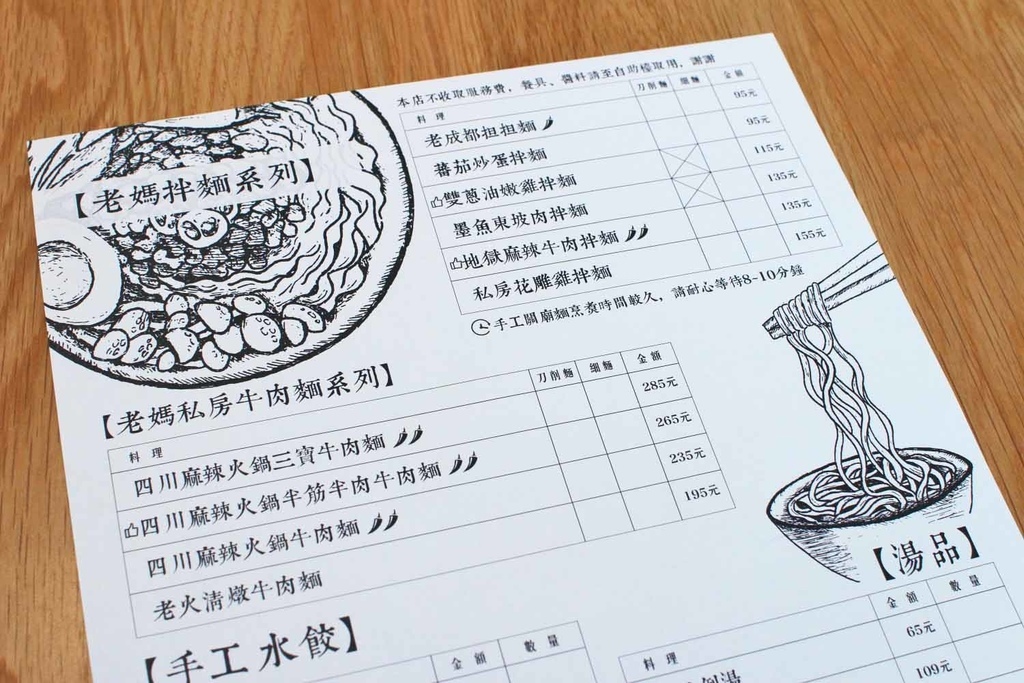 本店不收取服務費，餐具、醬料請至自助檯取用，謝謝
【老媽拌麵系列】
料理 刀削麵 細麵 金額
老成都担担麵 95元
蕃茄炒蛋拌麵 95元
雙蔥油嫩雞拌麵 115元
墨魚東坡肉拌麵 135元
地獄麻辣牛肉拌麵 135元
私房花雕雞拌麵 155元
手工關廟麵烹煮時間較久，請耐心等待8~10分鐘
【老媽私房牛肉麵系列】
料理 刀削麵 細麵 金額
四川麻辣火鍋三寶牛肉麵 285元
四川麻辣火鍋半筋半肉牛肉麵 265元
四川麻辣火鍋牛肉麵 235元
老火清燉牛肉麵 195元
【手工水餃】
金額 數量
【湯品】
料理 金額 數量
65元
109元